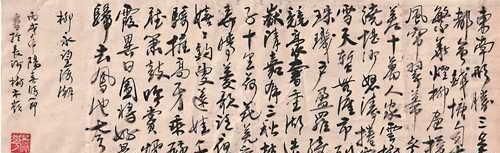 東南形勝三吳
都會錢塘自古
繁華烟柳畫橋
風帘翠幕參
差十萬人家雲樹
繞堤沙怒濤捲霜
雪天塹無涯市列
珠璣戶盈羅綺
競豪奢重湖疊
巘清嘉有三秋桂
子十里荷花羌
管弄晴菱歌泛夜
嬉嬉釣叟蓮娃千
騎擁高牙乘醉
聽簫鼓吟賞烟
霞異日圖將好景
歸去鳳池夸
柳永望海潮
丙戌年
書於長沙